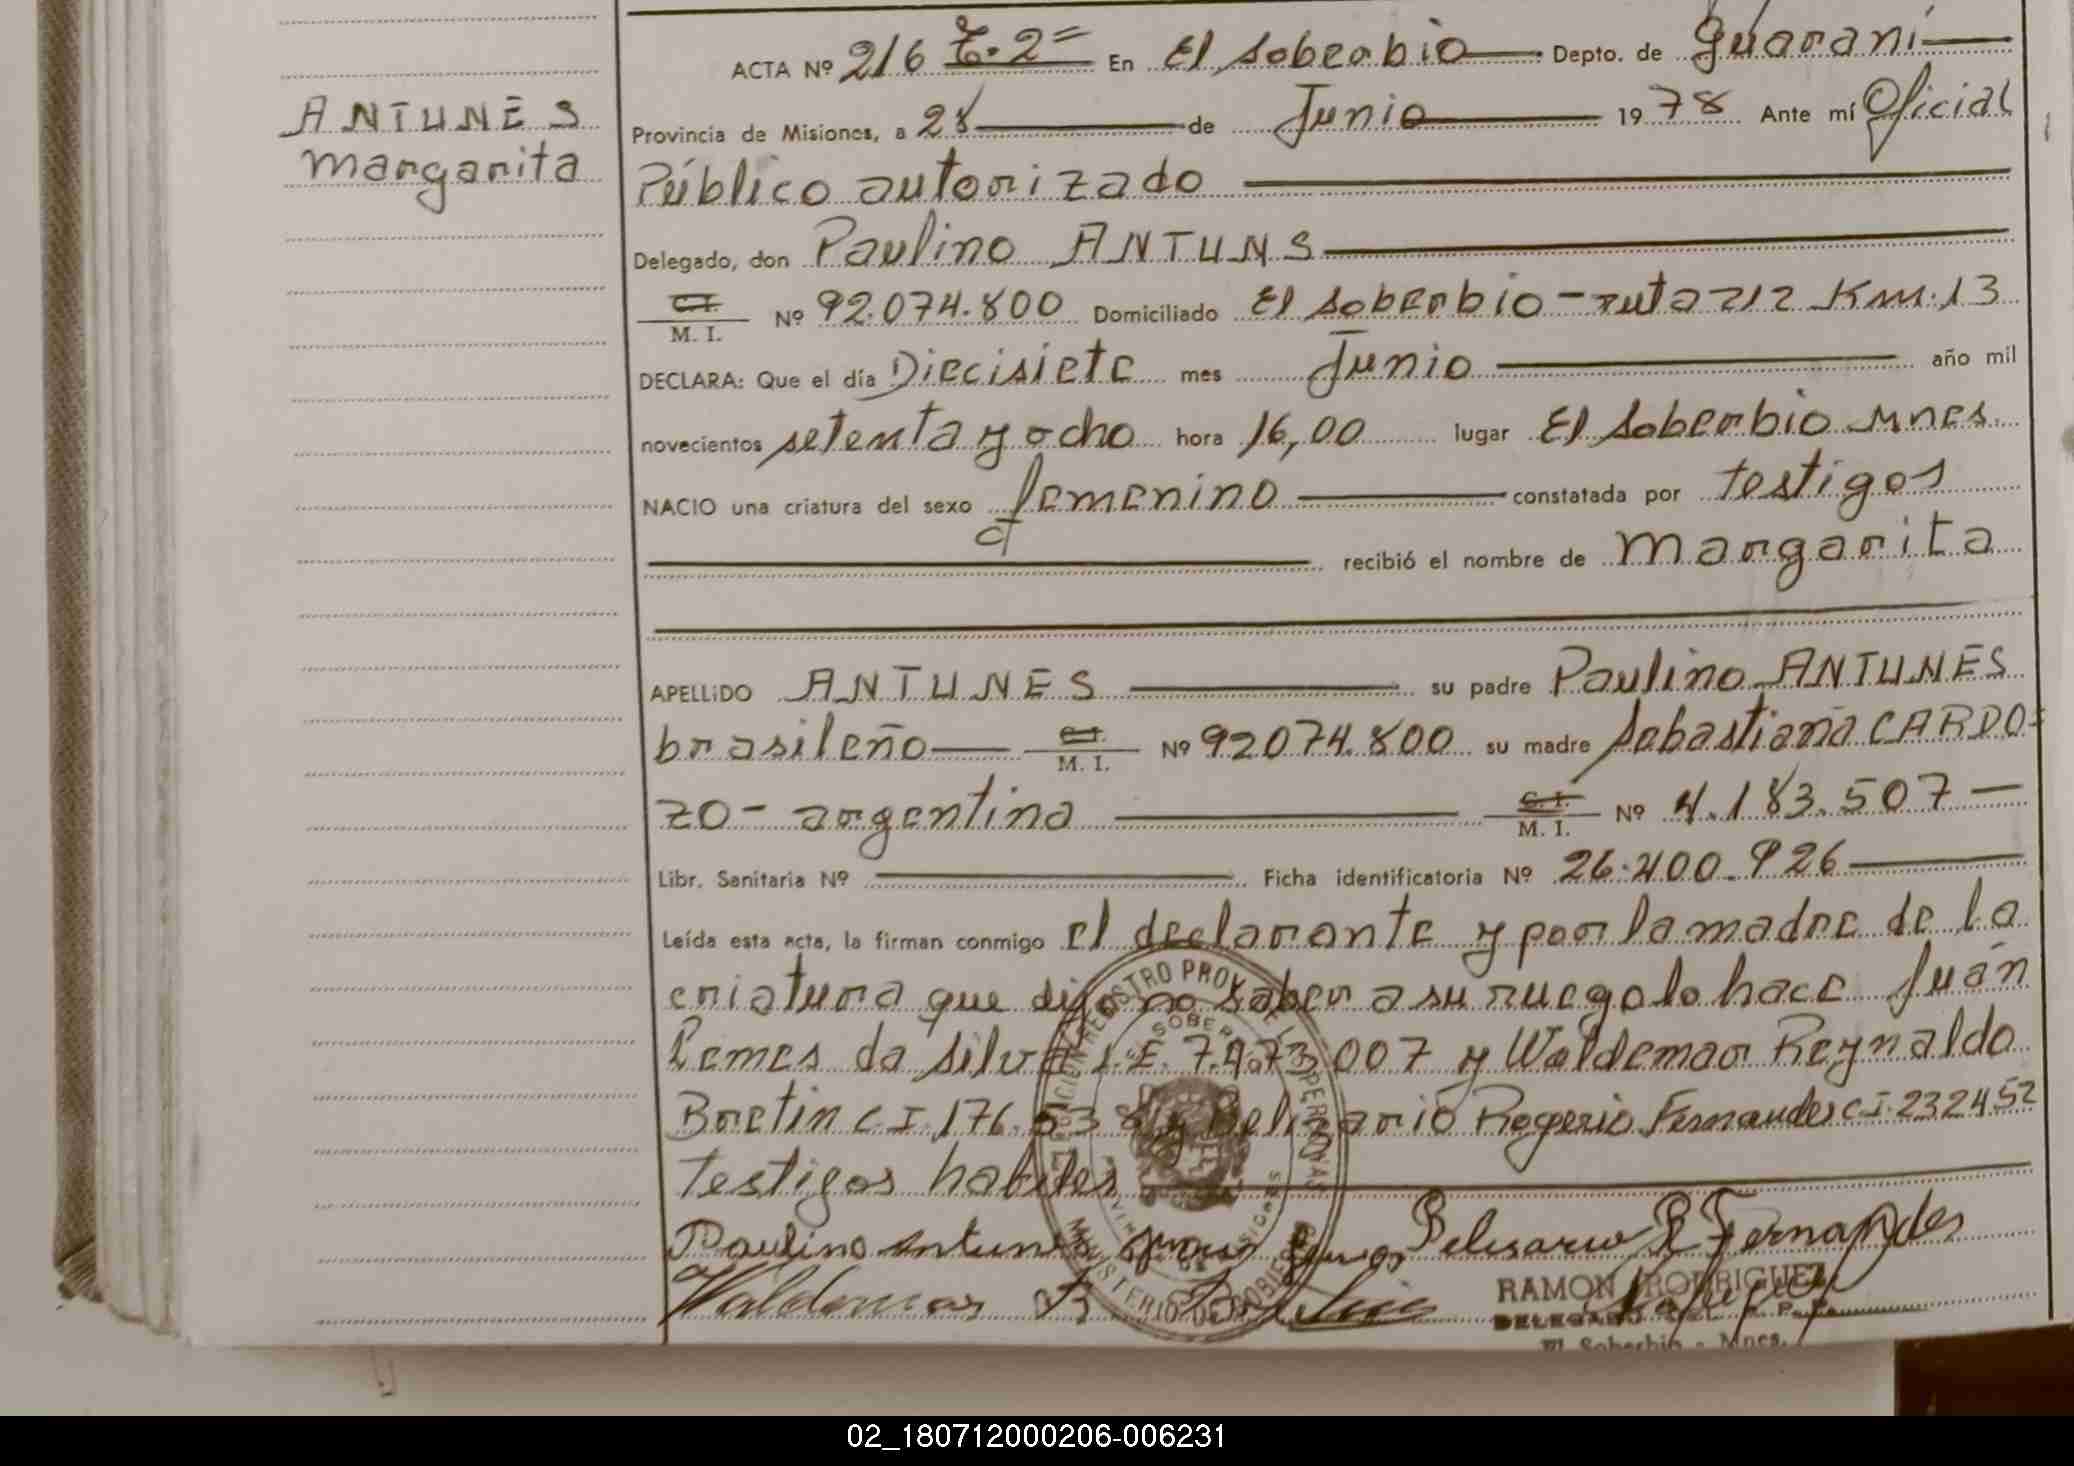 ANTUNES
Margarita
ACTA Nº 216 T. 2º En El Soberbio Depto. de Guaraní
Provincia de Misiones, a 28 de Junio 1978 Ante mí Oficial
Público autorizado
Delegado, don Paulino ANTUNS
C.I. M. I. Nº 92.074.800 Domiciliado El Soberbio - ruta 212 Km. 13
DECLARA: Que el día Diecisiete mes Junio año mil
novecientos setenta y ocho hora 16,00 lugar El Soberbio Mnes.
NACIO una criatura del sexo femenino constatada por testigos
recibió el nombre de Margarita
APELLIDO ANTUNES su padre Paulino ANTUNES
brasileño C.I. M. I. Nº 92074.800 su madre Sebastiana CARDO=
ZO - argentina C.I. M. I. Nº 4.183.507 —
Libr. Sanitaria Nº Ficha identificatoria Nº 26.400.926
Leída esta acta, la firman conmigo el declarante y por la madre de la
criatura que dijo no saber a su ruego lo hace Juán
Lemes da Silva L.E. 7.473.007 y Waldemar Reynaldo
Boetin C I. 176.538 y Belizario Rogerio Fernandes C I. 232452
Testigos habiles
Paulino antunes Juan Lemes Belisario R Fernandes
Waldemar B Silva
RAMON RODRIGUEZ
DELEGADO R. P.
El Soberbio - Mnes.
02_180712000206-006231